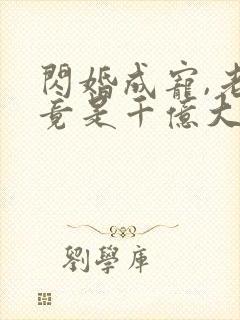 閃婚成寵,老
竟是千億大
劉學庫